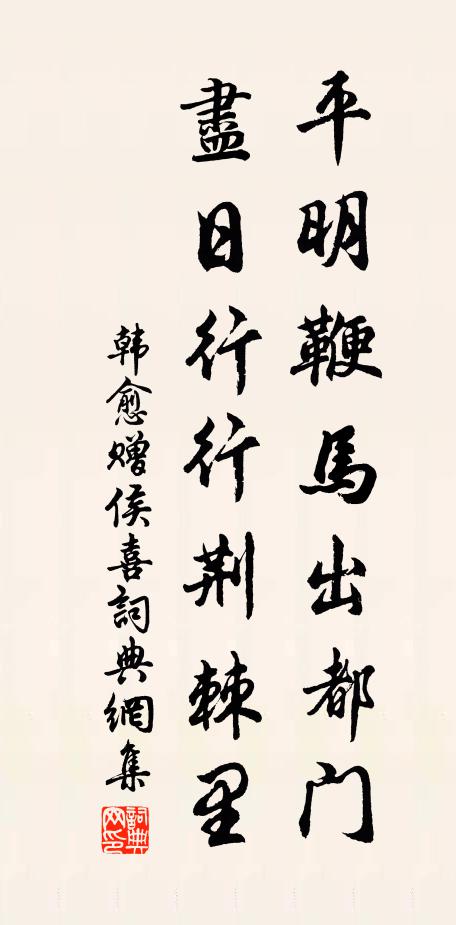 平明鞭馬出都门
盡日行行荆棘里
韩愈赠侯喜詞典網集
詞典網印